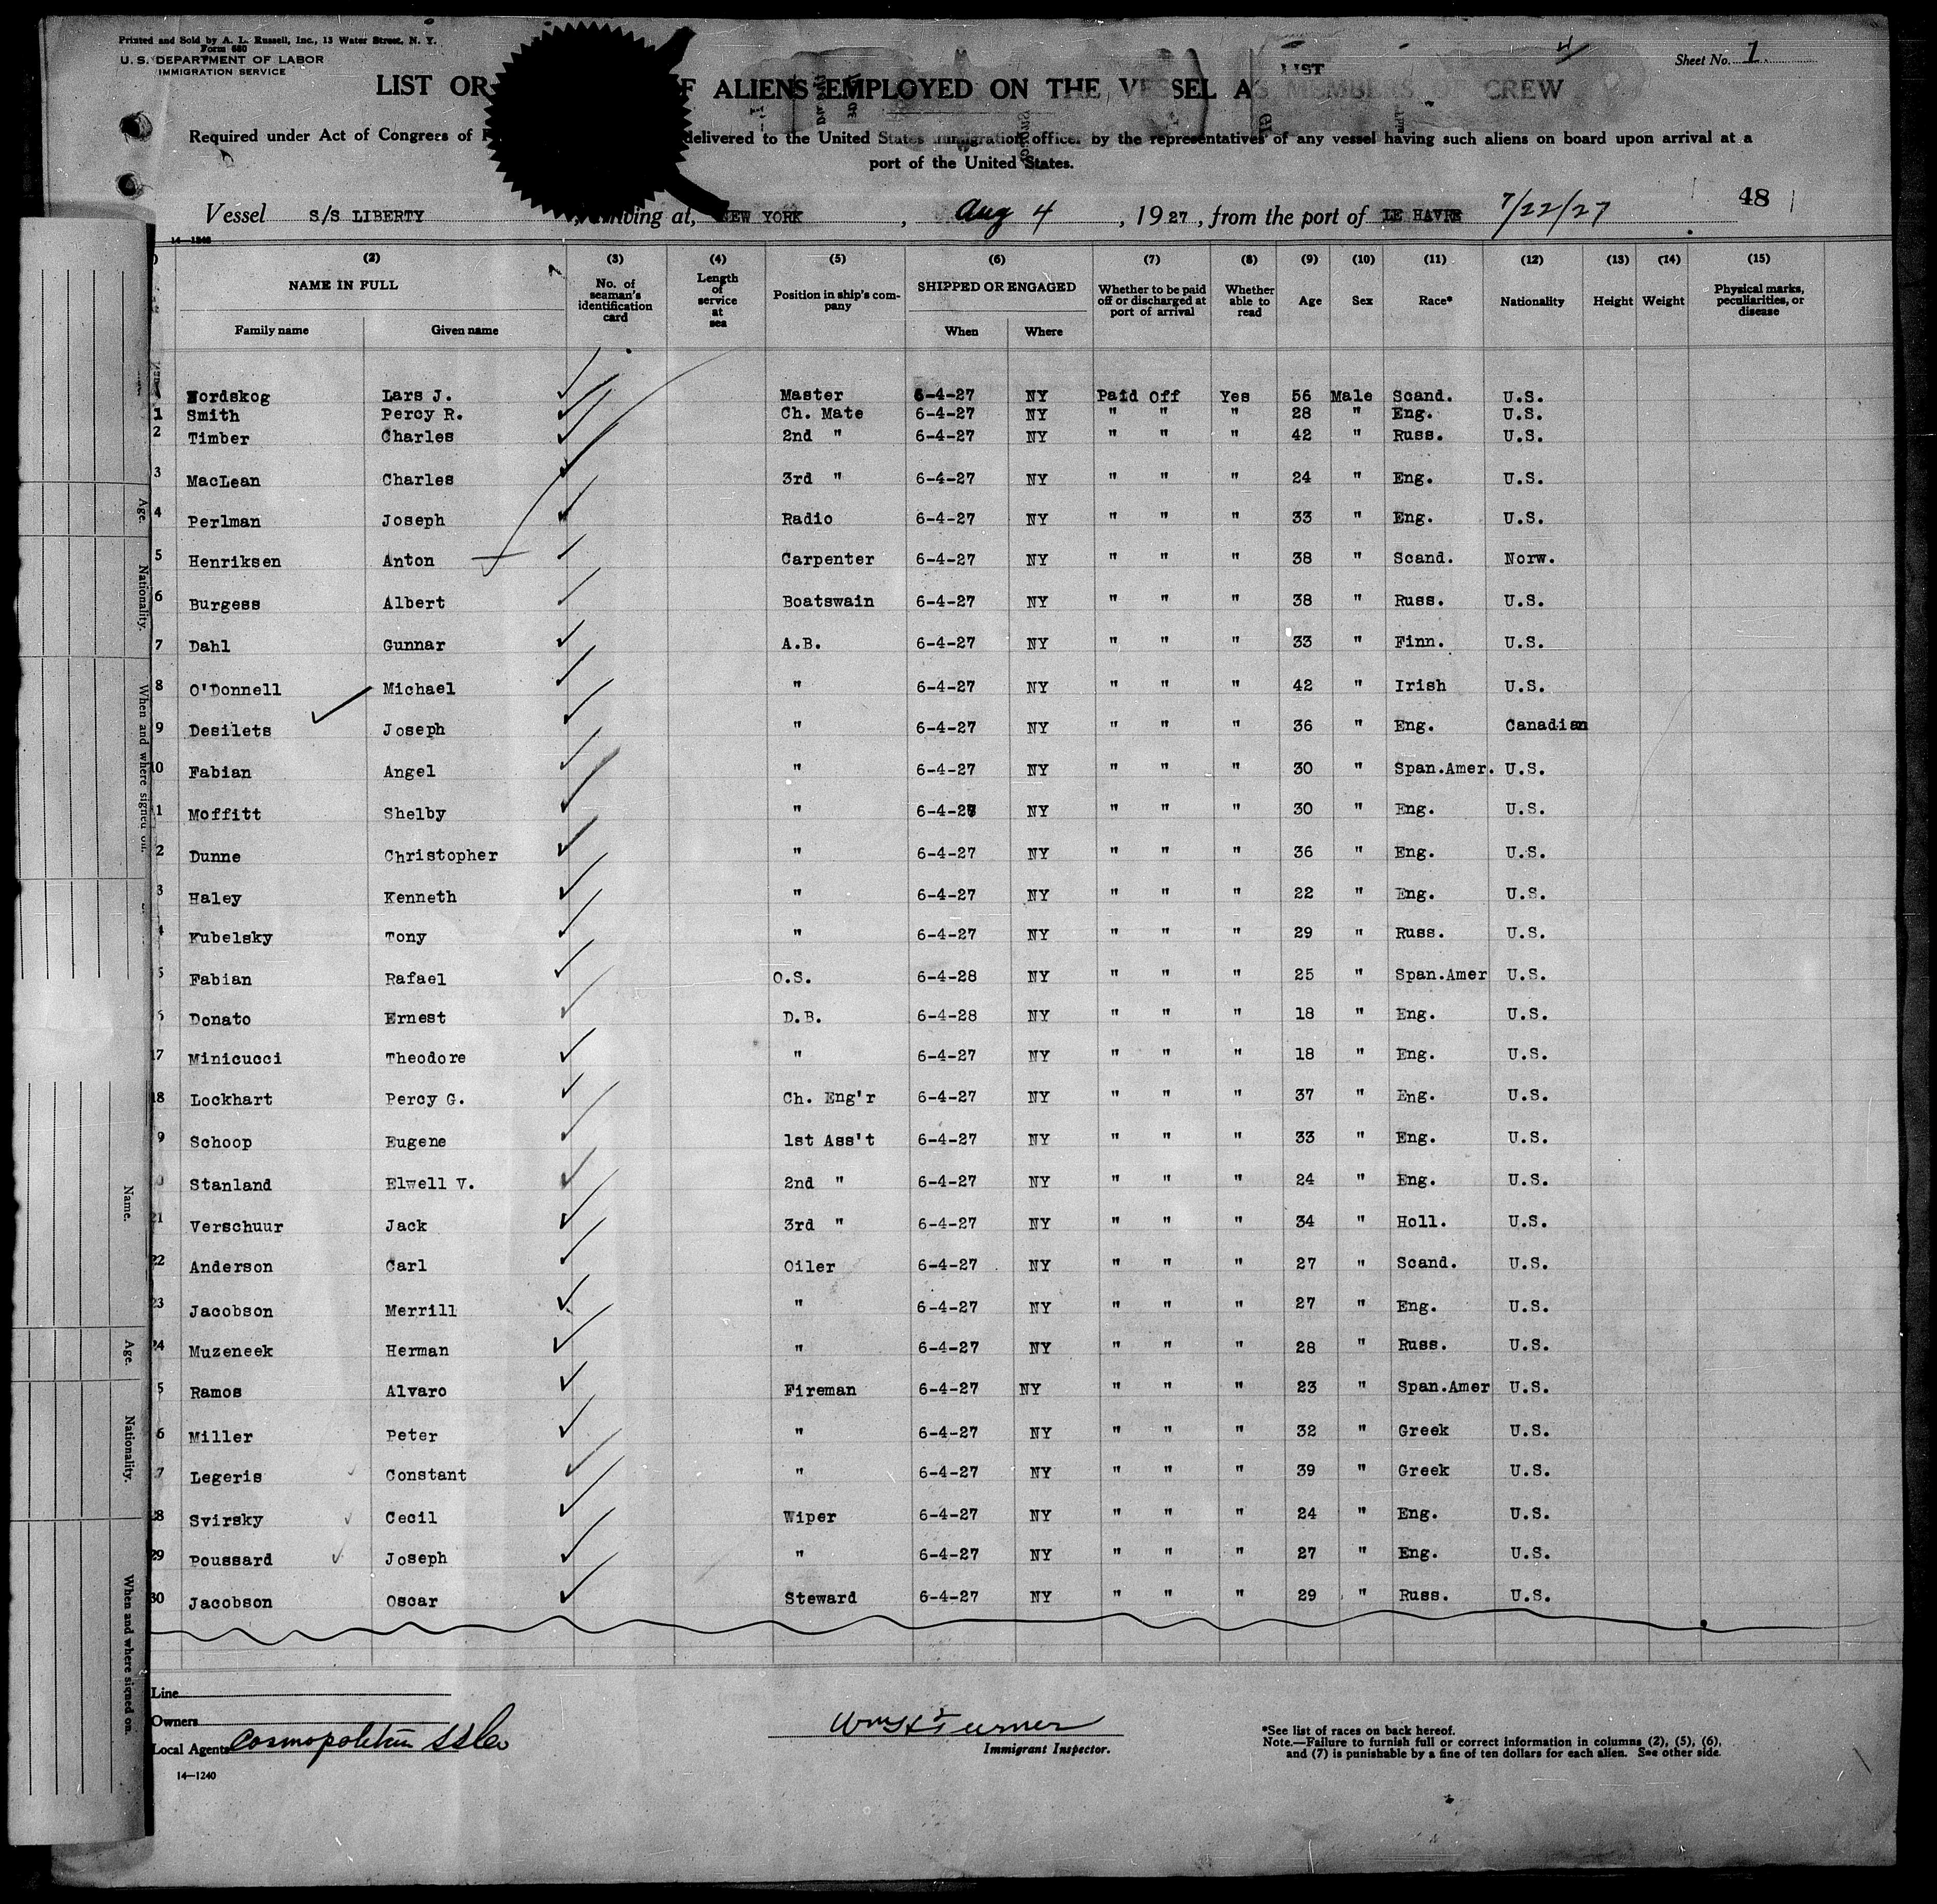 Printed and Sold by A. L. Russell, Inc., 13 Water Street, N. Y.
Form 680
U. S. DEPARTMENT OF LABOR
IMMIGRATION SERVICE
Sheet No. 1
LIST
LIST OR F ALIENS EMPLOYED ON THE VESSEL AS MEMBERS OF CREW
Required under Act of Congress of delivered to the United States immigration officer by the representatives of any vessel having such aliens on board upon arrival at a
port of the United States.
Vessel S/S LIBERTY arriving at, NEW YORK, Aug 4, 1927, from the port of LE HAVRE 7/22/27 48
14-1240
(2) (3) (4) (5) (6) (7) (8) (9) (10) (11) (12) (13) (14) (15)
NAME IN FULL No. of seaman's identification card Length of service at sea Position in ship's company SHIPPED OR ENGAGED Whether to be paid off or discharged at port of arrival Whether able to read Age Sex Race* Nationality Height Weight Physical marks, peculiarities, or disease
Family name Given name When Where
Nordskog Lars J. Master 6-4-27 NY Paid Off Yes 56 Male Scand. U.S.
1 Smith Percy R. Ch. Mate 6-4-27 NY " " " 28 " Eng. U.S.
2 Timber Charles 2nd " 6-4-27 NY " " " 42 " Russ. U.S.
3 MacLean Charles 3rd " 6-4-27 NY " " " 24 " Eng. U.S.
4 Perlman Joseph Radio 6-4-27 NY " " " 33 " Eng. U.S.
5 Henriksen Anton Carpenter 6-4-27 NY " " " 38 " Scand. Norw.
6 Burgess Albert Boatswain 6-4-27 NY " " " 38 " Russ. U.S.
7 Dahl Gunnar A.B. 6-4-27 NY " " " 33 " Finn. U.S.
8 O'Donnell Michael " 6-4-27 NY " " " 42 " Irish U.S.
9 Desilets Joseph " 6-4-27 NY " " " 36 " Eng. Canadian
10 Fabian Angel " 6-4-27 NY " " " 30 " Span.Amer. U.S.
1 Moffitt Shelby " 6-4-27 NY " " " 30 " Eng. U.S.
2 Dunne Christopher " 6-4-27 NY " " " 36 " Eng. U.S.
3 Haley Kenneth " 6-4-27 NY " " " 22 " Eng. U.S.
4 Kubelsky Tony " 6-4-27 NY " " " 29 " Russ. U.S.
5 Fabian Rafael O.S. 6-4-28 NY " " " 25 " Span.Amer U.S.
6 Donato Ernest D.B. 6-4-28 NY " " " 18 " Eng. U.S.
17 Minicucci Theodore " 6-4-27 NY " " " 18 " Eng. U.S.
18 Lockhart Percy G. Ch. Eng'r 6-4-27 NY " " " 37 " Eng. U.S.
9 Schoop Eugene 1st Ass't 6-4-27 NY " " " 33 " Eng. U.S.
0 Stanland Elwell V. 2nd " 6-4-27 NY " " " 24 " Eng. U.S.
21 Verschuur Jack 3rd " 6-4-27 NY " " " 34 " Holl. U.S.
22 Anderson Carl Oiler 6-4-27 NY " " " 27 " Scand. U.S.
23 Jacobson Merrill " 6-4-27 NY " " " 27 " Eng. U.S.
24 Muzeneek Herman " 6-4-27 NY " " " 28 " Russ. U.S.
5 Ramos Alvaro Fireman 6-4-27 NY " " " 23 " Span.Amer U.S.
6 Miller Peter " 6-4-27 NY " " " 32 " Greek U.S.
7 Legeris Constant " 6-4-27 NY " " " 39 " Greek U.S.
28 Svirsky Cecil Wiper 6-4-27 NY " " " 24 " Eng. U.S.
29 Poussard Joseph " 6-4-27 NY " " " 27 " Eng. U.S.
30 Jacobson Oscar Steward 6-4-27 NY " " " 29 " Russ. U.S.
Age.
Nationality.
When and where signed on.
Name.
Age.
Nationality.
When and where signed on.
Line
Owners
Local Agents Cosmopolitan SS Co
14-1240
Turner
Immigrant Inspector.
*See list of races on back hereof.
Note.—Failure to furnish full or correct information in columns (2), (5), (6),
and (7) is punishable by a fine of ten dollars for each alien. See other side.